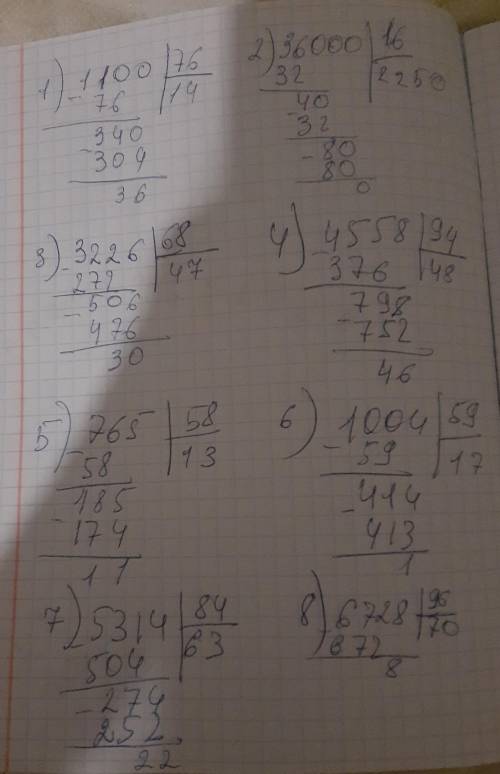 1) 1100 | 76
- 76 | 14
- 340
304
36
2) 36000 | 16
32 | 2250
- 40
32
- 80
80
0
3) - 3226 | 68
272 | 47
- 506
476
30
4) - 4558 | 94
376 | 48
- 798
752
46
5) - 765 | 58
58 | 13
- 185
174
11
6) - 1004 | 59
59 | 17
- 414
413
1
7) - 5314 | 84
504 | 63
- 274
252
22
8) - 6728 | 96
672 | 70
8